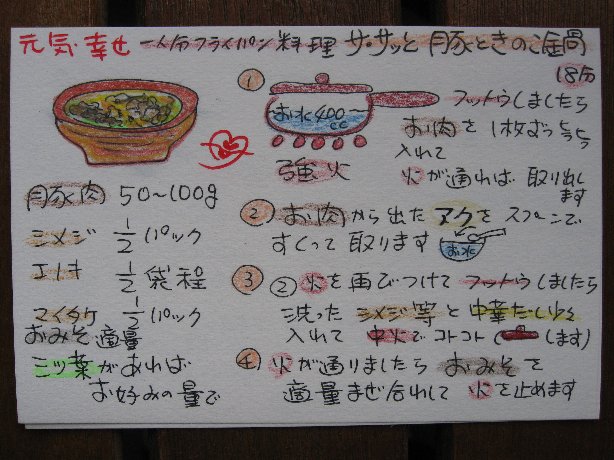 元気・幸せ 一人分フライパン料理 ササッと豚ときのこ鍋
18分
① お水400cc
強火
フットウしましたら
お肉を1枚ずつ
入れて
火が通れば取り出し
ます
豚肉 50～100g
シメジ 1/2パック
エノキ 1/2袋程
マイタケ 1/2パック
おみそ適量
三ツ葉があれば
お好みの量で
② お肉から出たアクをスプーンで
すくって取ります
お水
③ ②火を再びつけてフットウしましたら
洗った シメジ等と中華だし少々
入れて 中火でコトコト( します)
④ 火が通りましたら おみそを
適量まぜ合わして 火を止めます